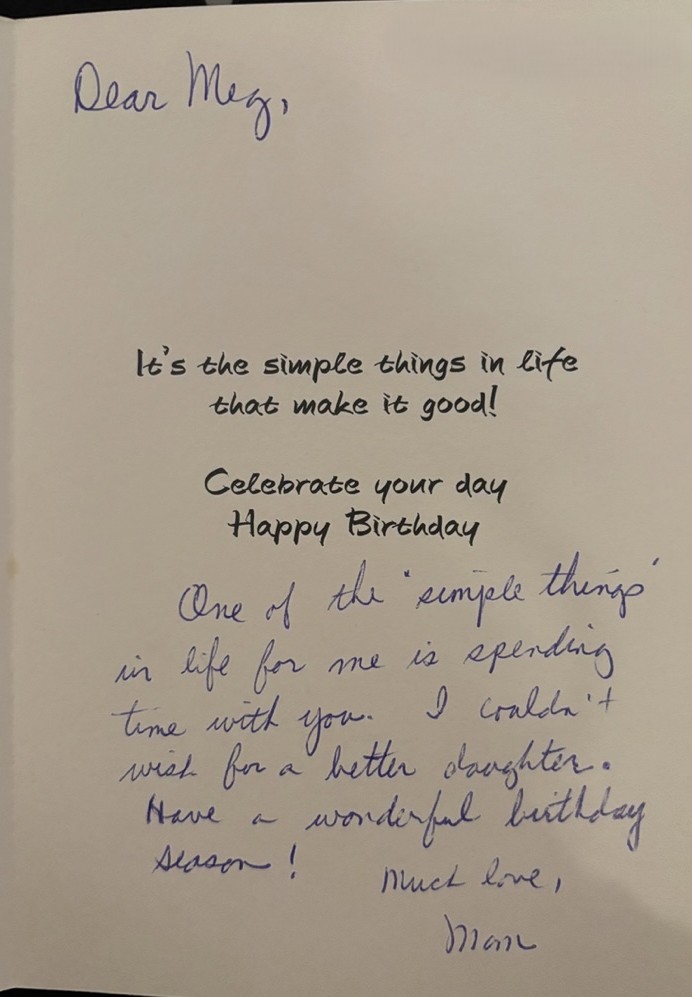 Dear Meg,
It's the simple things in life
that make it good!
Celebrate your day
Happy Birthday
One of the 'simple things'
in life for me is spending
time with you. I couldn't
wish for a better daughter.
Have a wonderful birthday
season!
Much love,
Mom